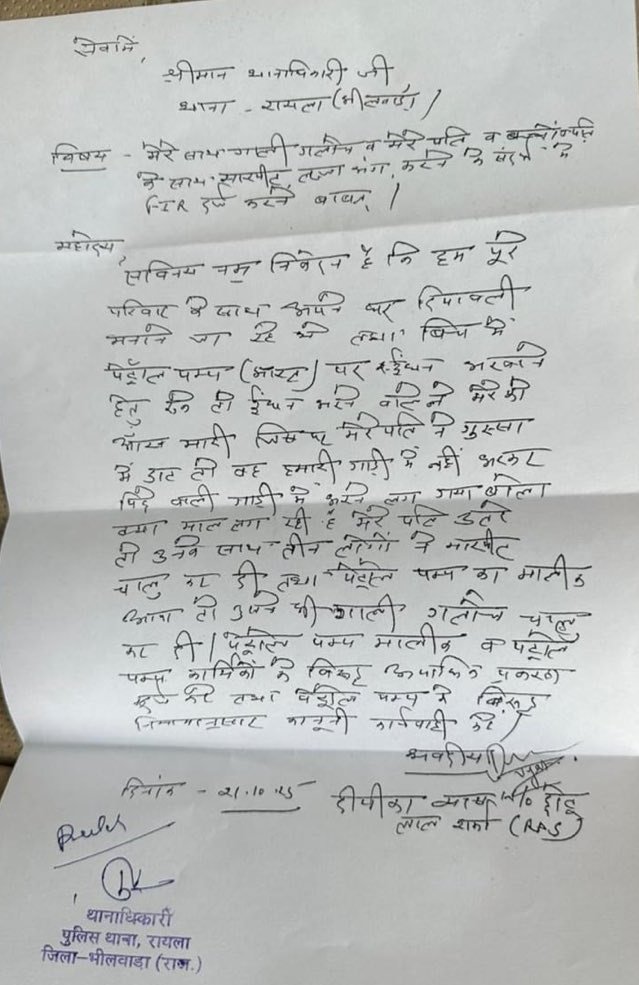 सेवामें,
श्रीमान थानाधिकारी जी
थाना - रायला (भीलवाड़ा)
विषय - मेरे साथ गाली गलोच व मेरे पति व
के साथ मारपीट, लज्जा भंग, करने के संदर्भ में
FIR दर्ज करने बाबत् ।
महोदय,
सविनय नम्र निवेदन है कि हम पूरे
परिवार के साथ अपने घर दिपावली
मनाने जा रहे थे तथा बिच में
पेट्रोल पम्प पर ईंधन भरवाने
हेतु रूके तो ईंधन भरने वाले ने मेरे को
आँख मारी जिस पर मेरे पति ने गुस्सा
में डाट तो वह हमारी गाड़ी में नहीं भरकर
पिछे वाली गाड़ी में भरने लग गया बोला
क्या माल लग रही है मेरे पति उतरे
तो उनके साथ तीन लोगों ने मारपीट
चालु कर दी तथा पेट्रोल पम्प का मालीक
आया तो उसने भी गाली गलोच चालु
कर दी । पेट्रोल पम्प मालीक व पेट्रोल
पम्प कार्मिकों के विरूद्ध आपराधिक प्रकरण
दर्ज करे तथा पेट्रोल पम्प के विरूद्ध
नियमानुसार कानूनी कार्यवाही करे ।
भवदीया
दिनांक - 21.10.25 दीपीका व्यास W/o छोटू
लाल शर्मा (RAS)
थानाधिकारी
पुलिस थाना, रायला
जिला-भीलवाडा (राज.)